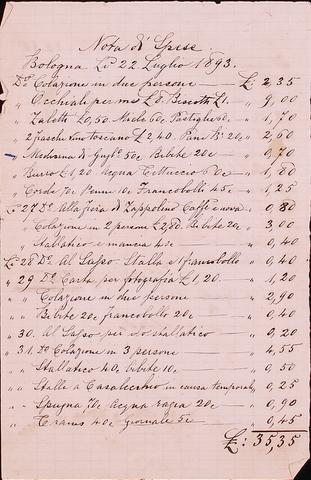 Nota di Spese
Bologna Li 22 Luglio 1893.
Do Colazione in due persone £: 2,35
" Occhiali per me £ 8. Becotti £1. " 9,00
" Zaletti £0,50 Miele 60c Pastiglie 60c " 1,70
" 2 fiaschi vino toscano £2,40. Pane Bo 20c " 2,60
" Medicina di 50c Bibite 20c " 0,70
" Burro £1,20 Acqua Tettuccio 60c " 1,80
" Corda 70c Penne 10c Francobolli 45c " 1,25
Li 27 Do Alla fiera di Zappolino Caffè e uova " 0,80
" Colazione in 2 persone £2,80. Bibite 20c " 3,00
" Stallatico e mancia 40c " 0,40
Li 28 Do Al Lupo Stalla e 1 francobollo " 0,40
" 29 Do Carta per fotografia £1,20. " 1,20
" " Colazione in due persone " 2,90
" " Bibite 20c francobollo 20c " 0,40
" 30. Al Lupo per do stallatico " 0,20
" 31. Do Colazione in 3 persone " 4,55
" " Stallatico 40c bibite 10c " 0,50
" " Stalla a Casalecchio in causa temporale " 0,25
" " Spugna 70c Acqua ragia 20c " 0,90
" " Tramvs 40c Giornale 5c " 0,45
£: 35,35